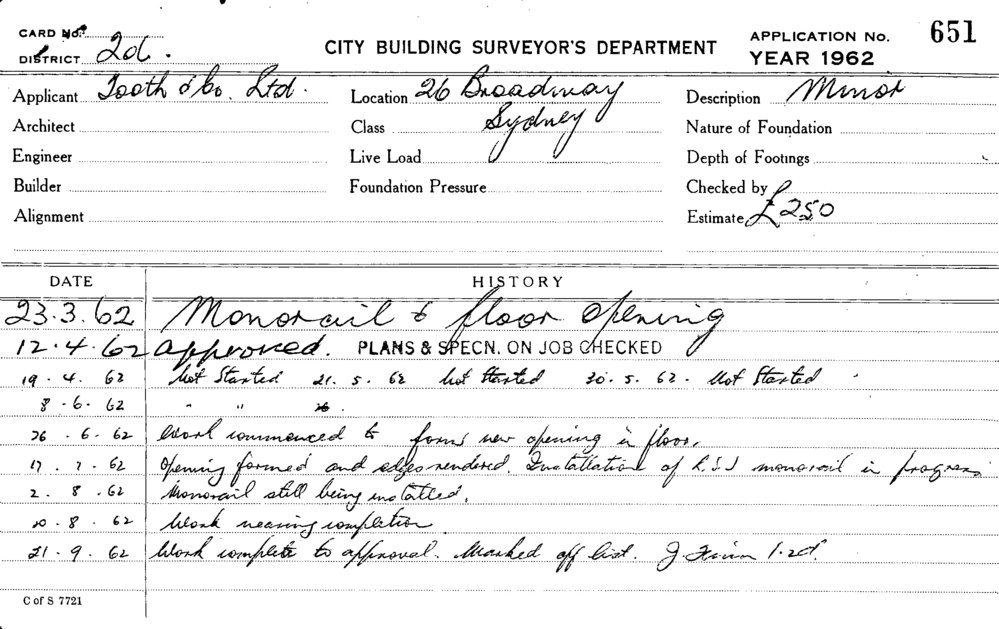 CARD No.
DISTRICT 2d.
CITY BUILDING SURVEYOR'S DEPARTMENT
APPLICATION No. 651
YEAR 1962
Applicant Tooth & Co. Ltd.
Location 26 Broadway
Description Minor
Architect
Class Sydney
Nature of Foundation
Engineer
Live Load
Depth of Footings
Builder
Foundation Pressure
Checked by
Alignment
Estimate £250
DATE HISTORY
23.3.62 Monorail & floor opening
12.4.62 approved. PLANS & SPECN. ON JOB CHECKED
19.4.62 Not Started 21.5.62 Not Started 30.5.62. Not Started
8.6.62 " "
26.6.62 Work commenced to form new opening in floor.
17.7.62 Opening formed and edges rendered. Installation of R.S.J monorail in progress
2.8.62 Monorail still being installed.
20.8.62 Work nearing completion
21.9.62 Work complete to approval. Marked off list. J. 2d.
C of S 7721